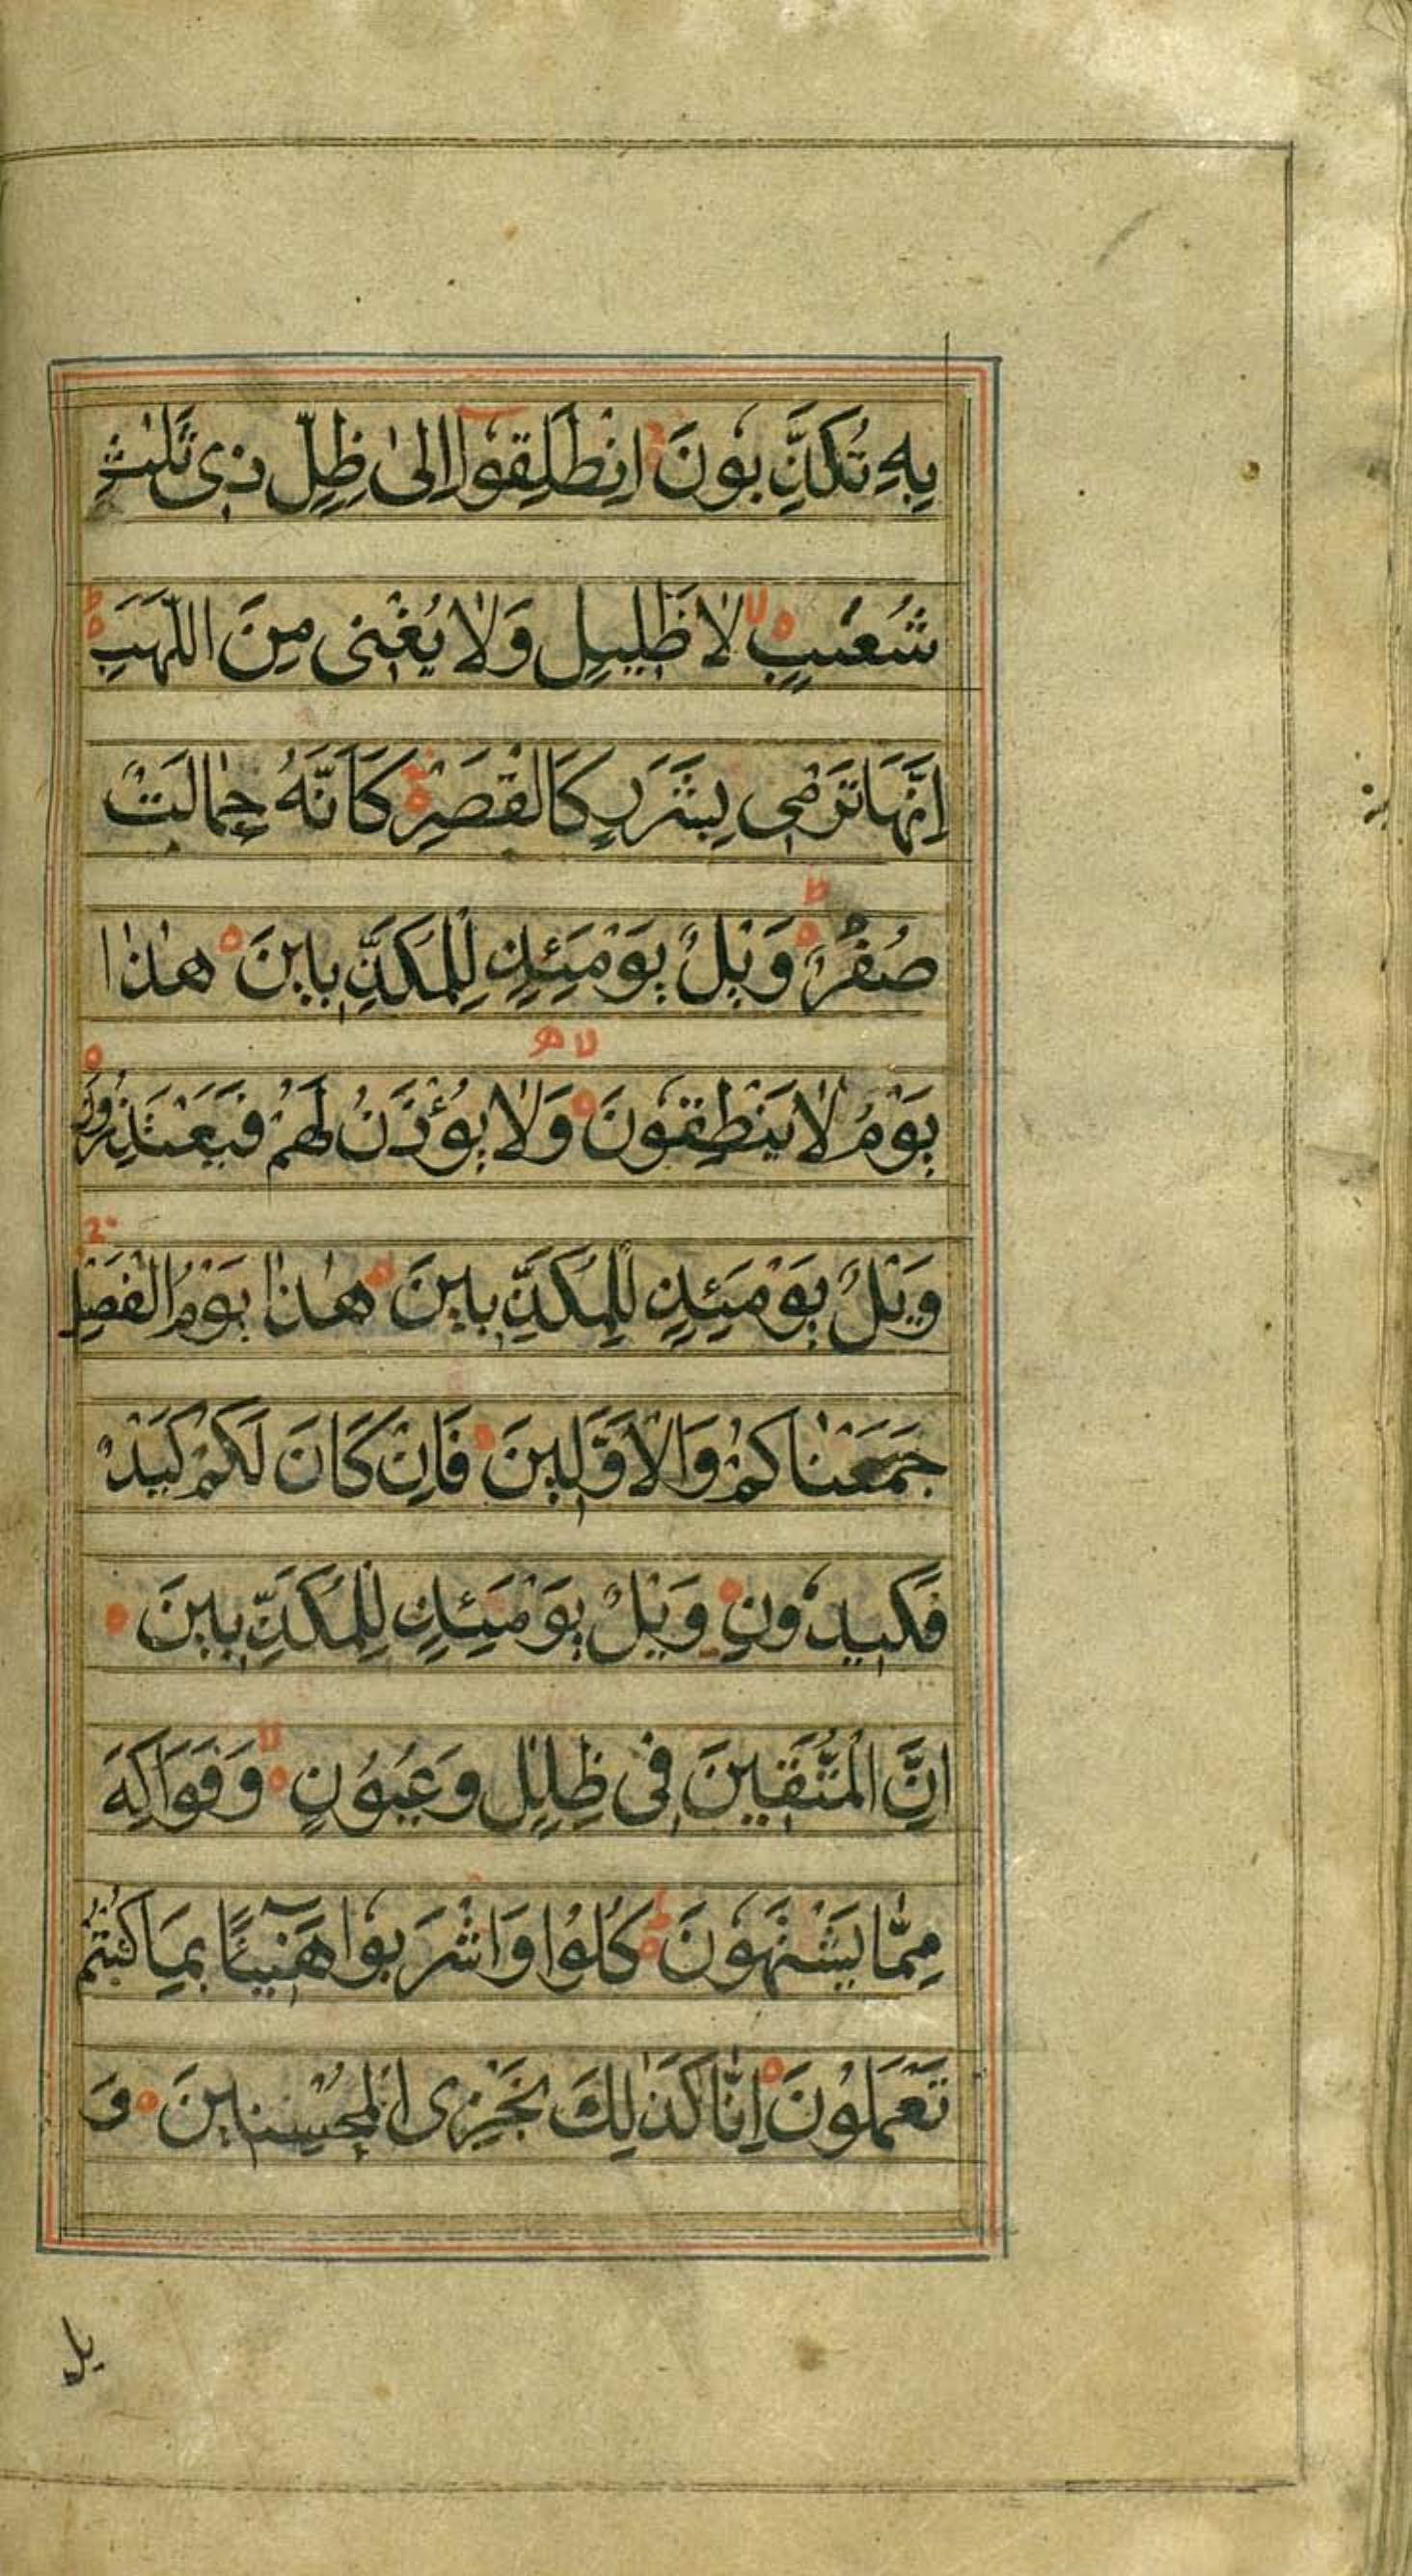 بِهِ تُكَذِّبُونَ انْطَلِقُوا اِلىٰ ظِلٍّ ذِى ثَلٰثِ
شُعَبٍ لا ظَلِيلٍ وَلا يُغْنِى مِنَ اللَّهَبِ
اِنَّهَا تَرْمِى بِشَرَرٍ كَالْقَصْرِ كَاَنَّهُ جِمٰالَتٌ
صُفْرٌ وَيْلٌ يَوْمَئِذٍ لِلْمُكَذِّبِينَ هٰذٰا
يَوْمُ لا يَنْطِقُونَ وَلا يُؤْذَنُ لَهُمْ فَيَعْتَذِرُونَ
وَيْلٌ يَوْمَئِذٍ لِلْمُكَذِّبِينَ هٰذٰا يَوْمُ الْفَصْلِ
جَمَعْنٰاكُمْ وَالْاَوَّلِينَ فَاِنْ كَانَ لَكُمْ كَيْدٌ
فَكِيدُونِ وَيْلٌ يَوْمَئِذٍ لِلْمُكَذِّبِينَ
اِنَّ الْمُتَّقِينَ فِى ظِلٰلٍ وَعُيُونٍ وَفَوَاكِهَ
مِمَّا يَشْتَهُونَ كُلُوا وَاشْرَبُوا هَنِيٓئًا بِمَا كُنْتُمْ
تَعْمَلُونَ اِنَّا كَذٰلِكَ نَجْزِى الْمُحْسِنِينَ وَ
يل